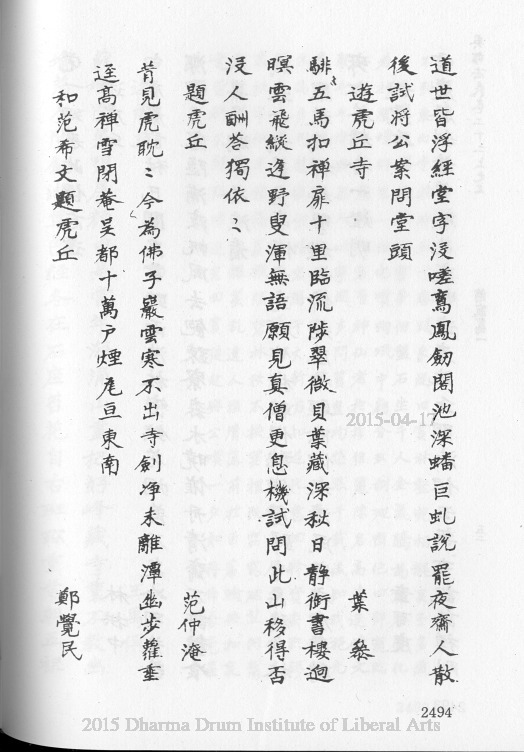 道世皆浮經堂字沒嗟鸞鳳劒閣池深蟠巨虬說罷夜齋人散
後試將公案問堂頭
遊虎丘寺 葉參
騑〻五馬扣禪扉十里臨流陟翠微貝葉藏深秋日靜銜書樓迥
暝雲飛縱逢野叟渾無語願見真僧更息機試問此山移得否
沒人酬荅獨依〻
題虎丘 范仲淹
昔見虎眈〻今為佛子巖雲寒不出寺劍凈未離潭幽步蘿垂
逕高禪雪閉菴吳都十萬戶煙瓦亘東南
和范希文題虎丘 鄭覺民
2494
2015-04-17
2015 Dharma Drum Institute of Liberal Arts